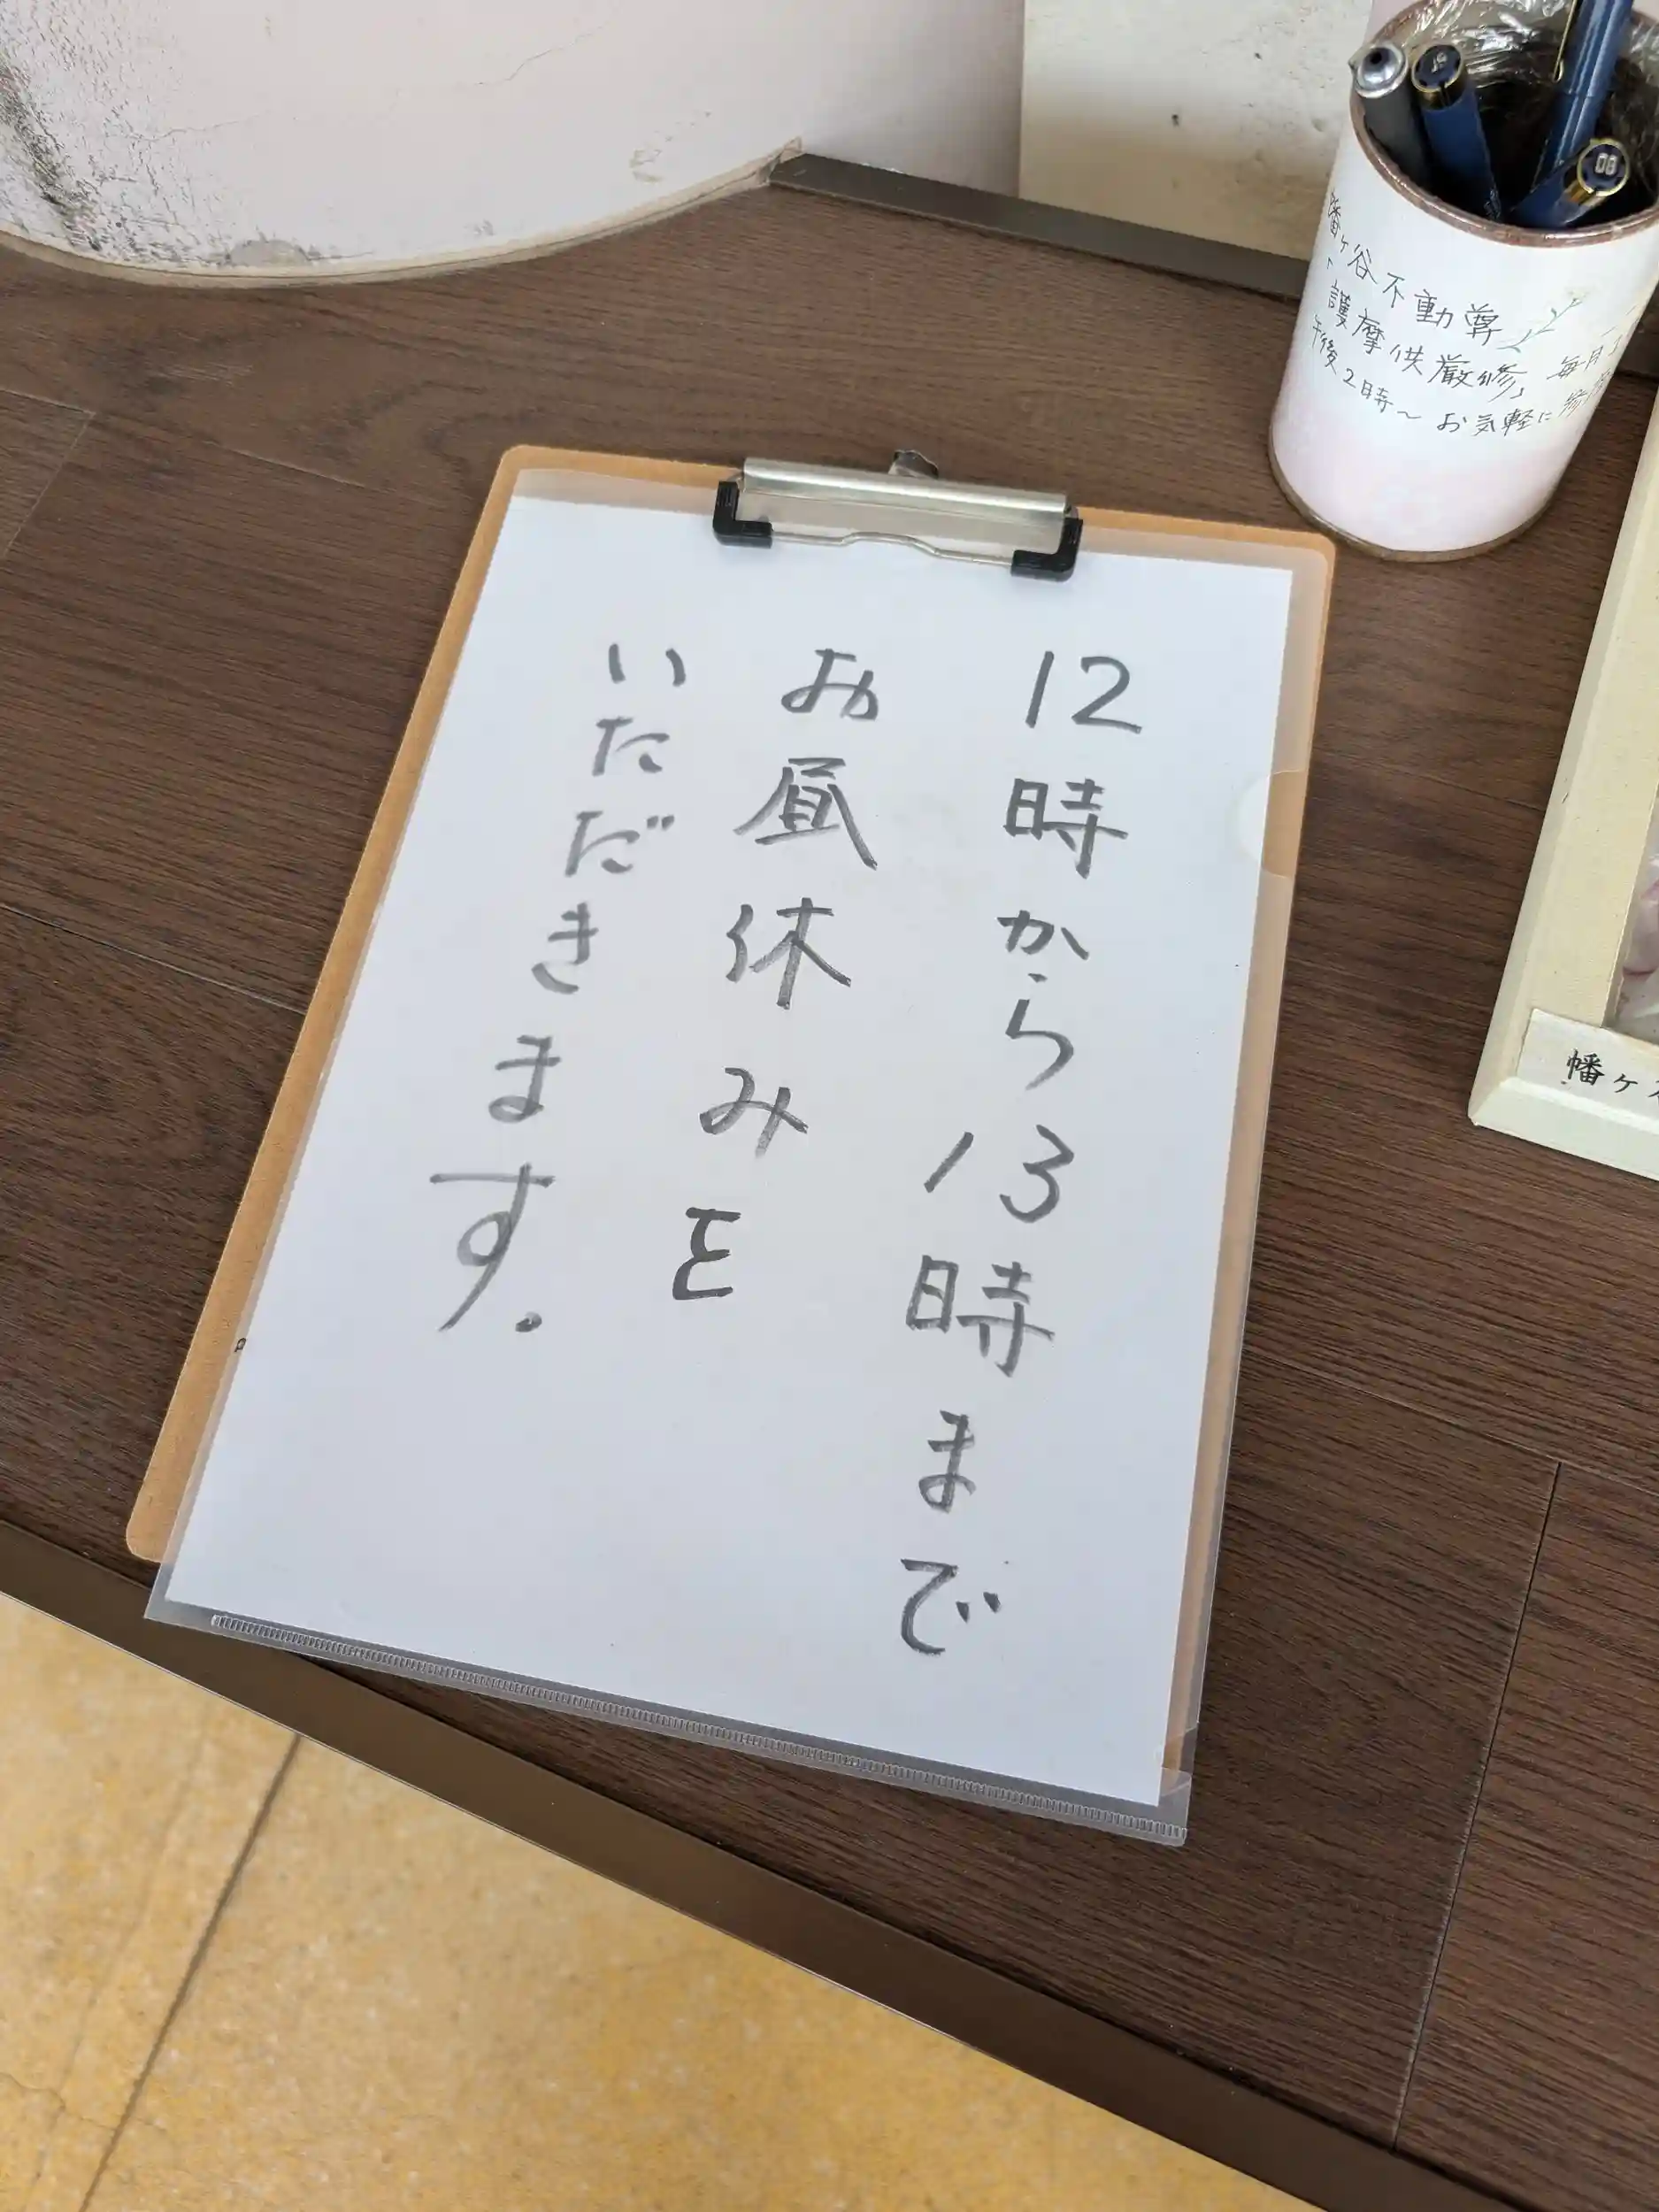 12時から13時まで
お昼休みを
いただきます.
幡ヶ谷不動尊
「護摩供厳修」毎月
午後2時〜 お気軽に
幡ケ
08